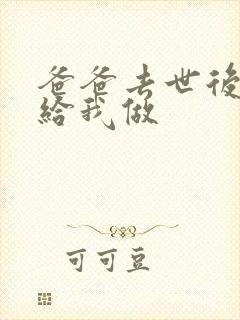 爸爸去世後
給我做
可可豆